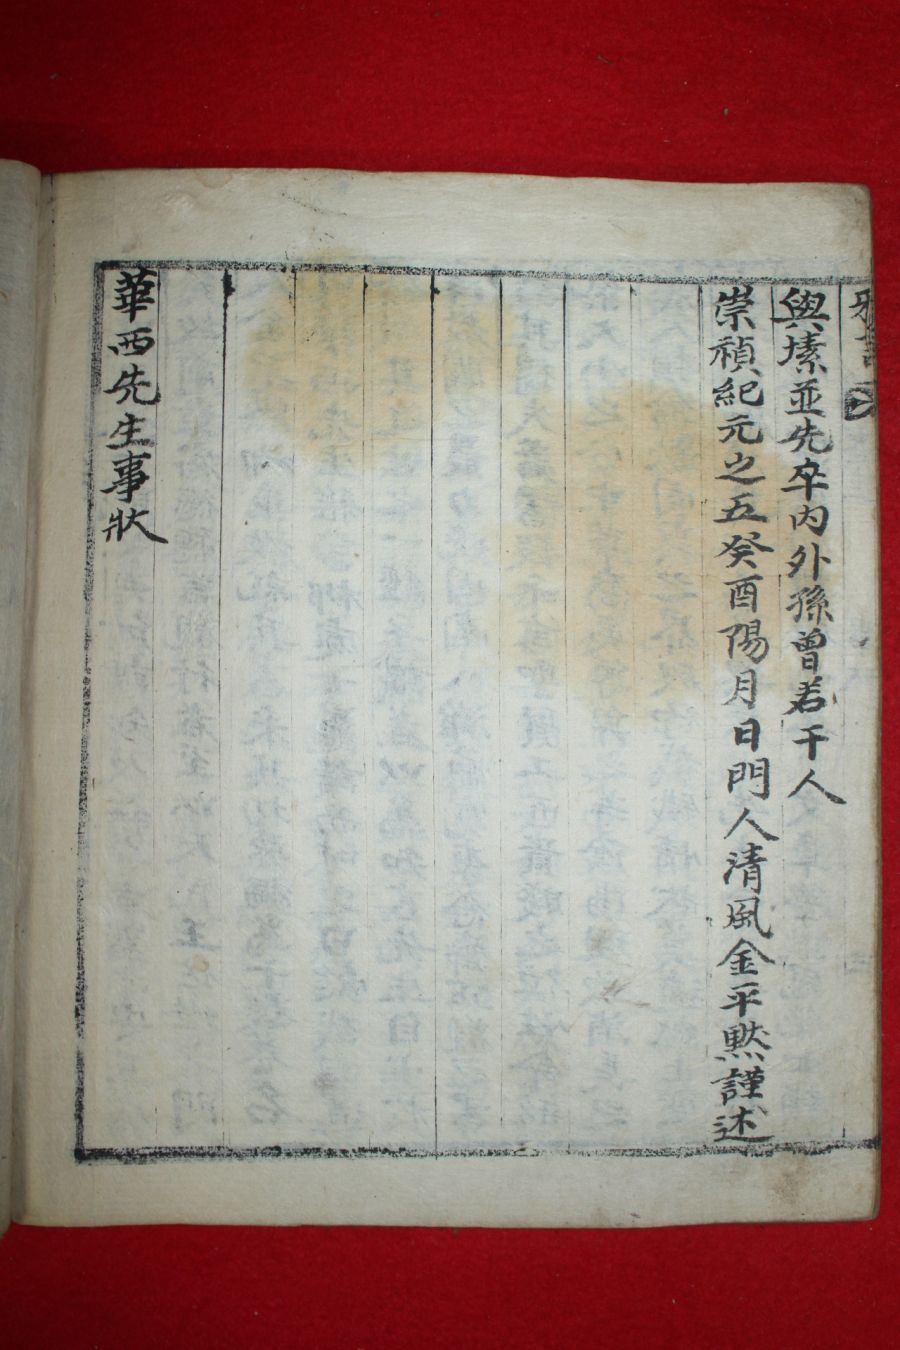 與㙛並先卒內外孫曾若干人
崇禎紀元之五癸酉陽月日門人清風金平默謹述
華西先生事狀